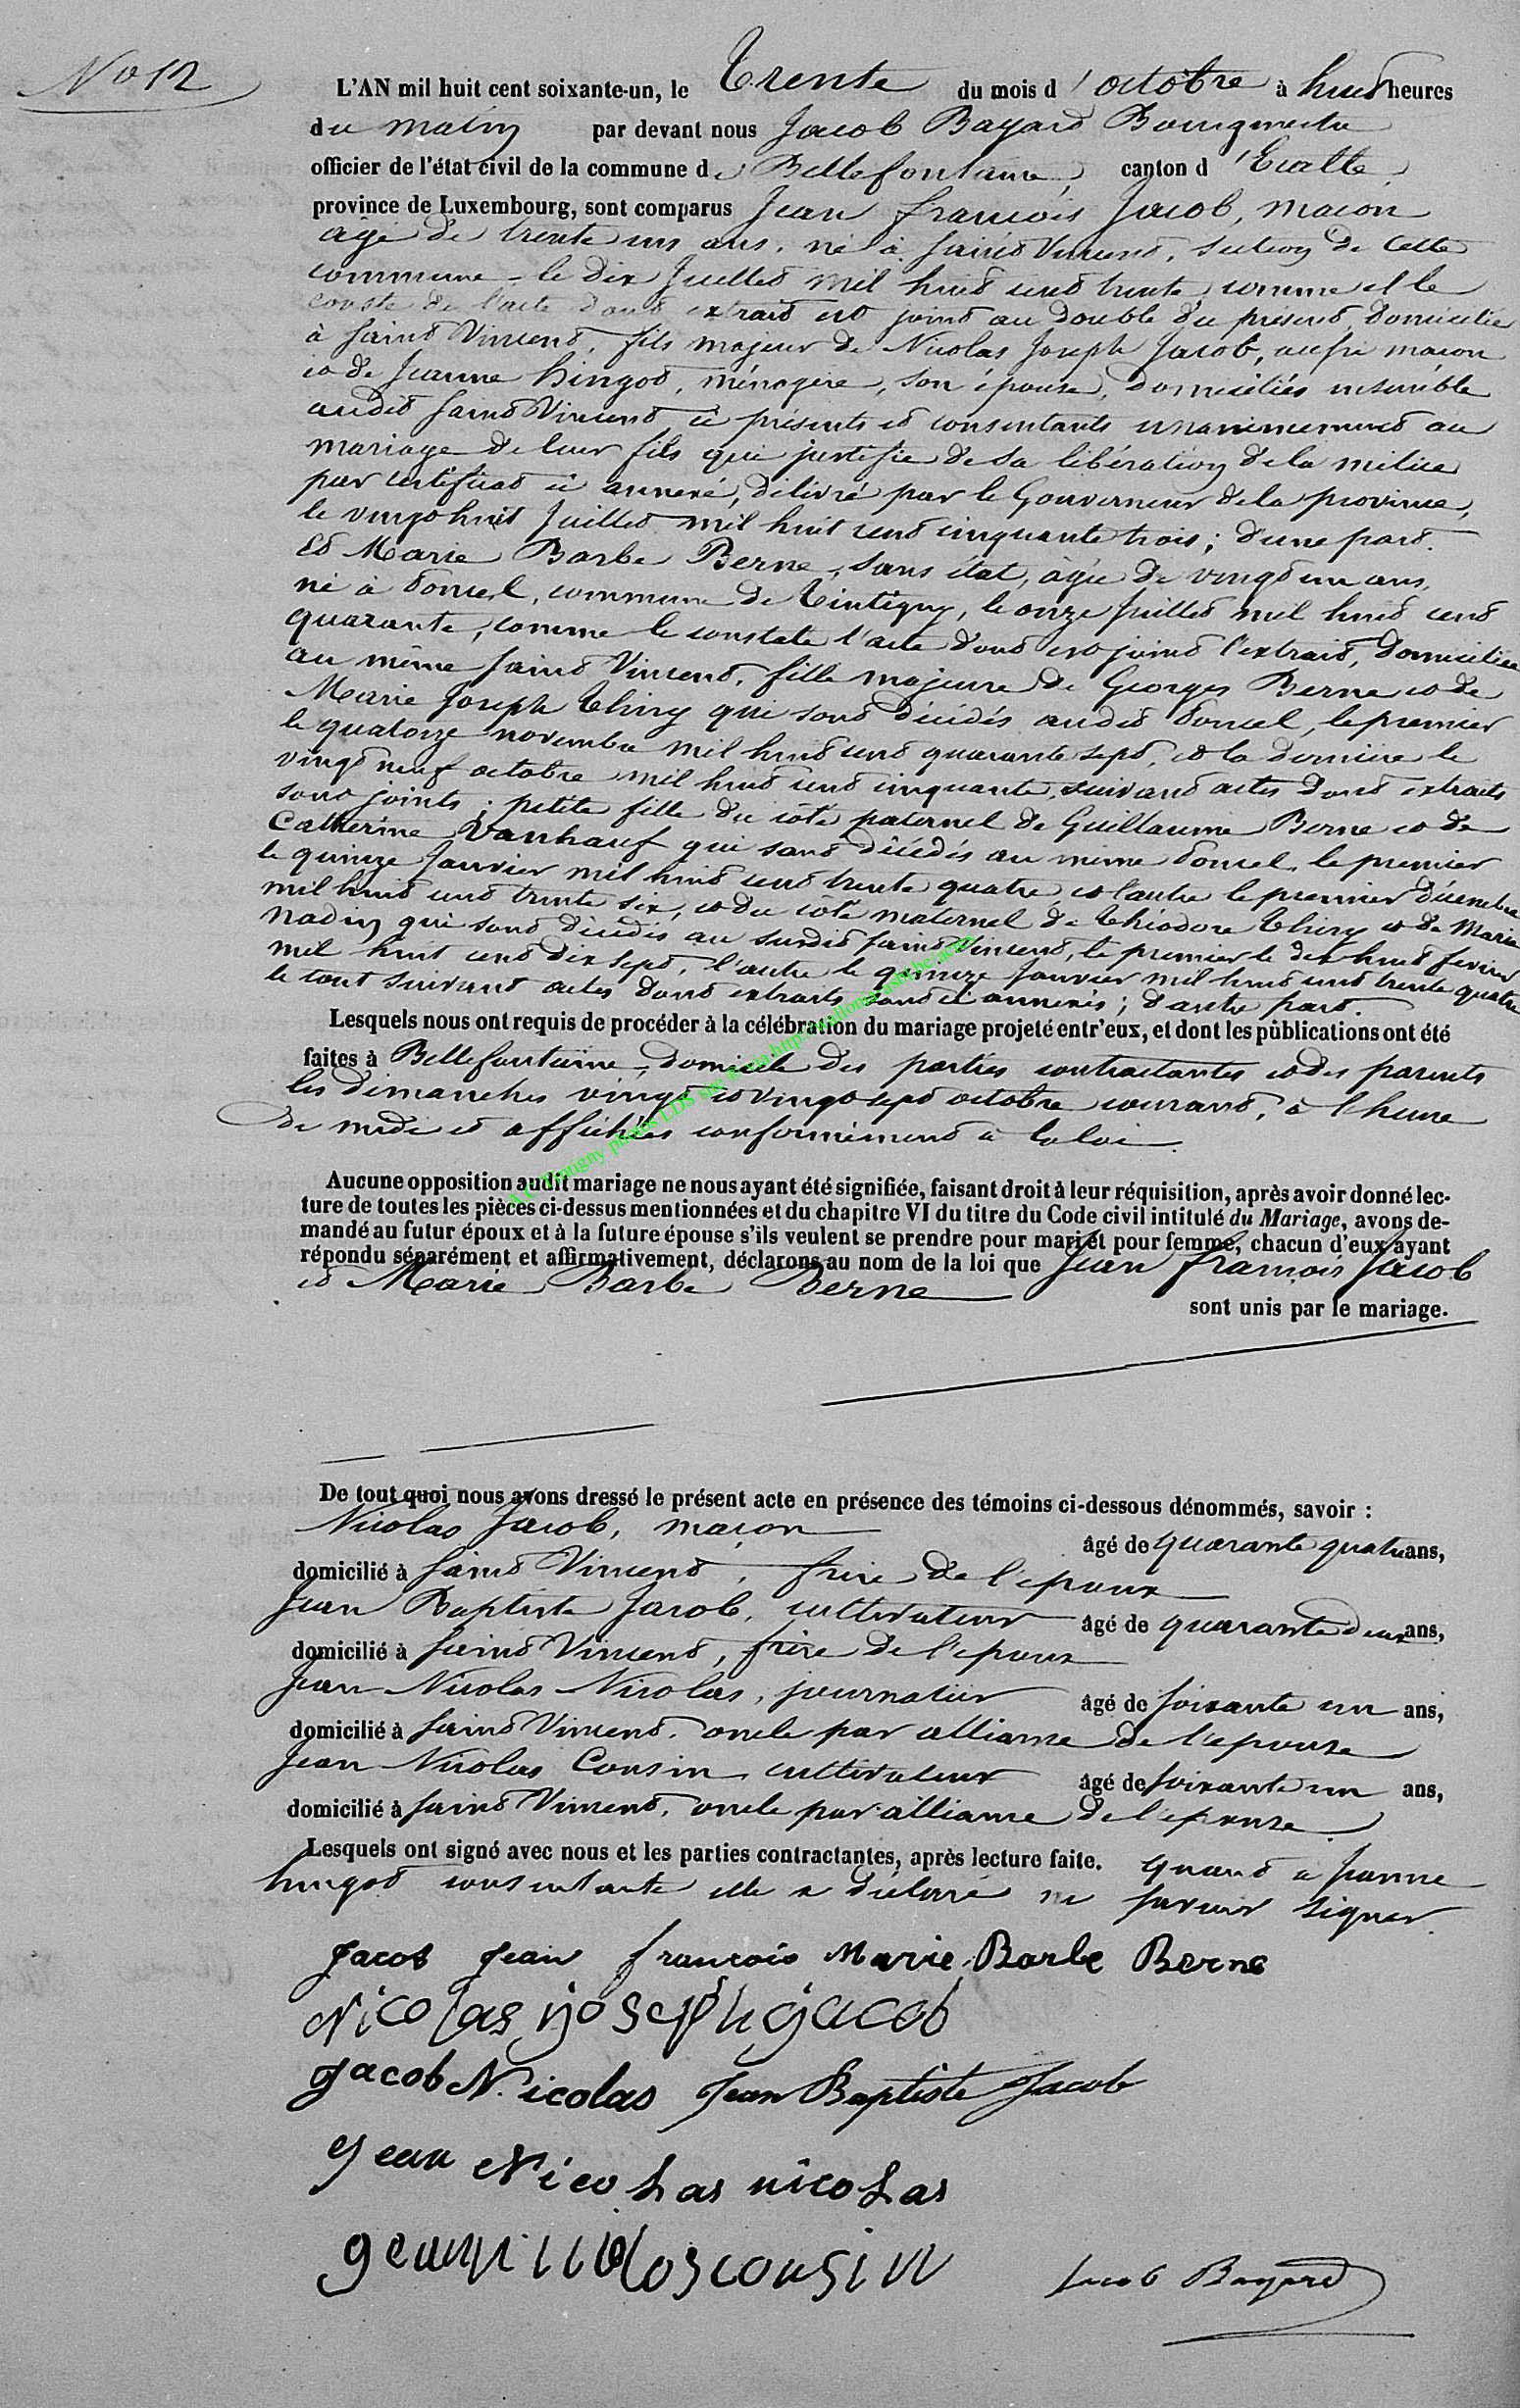 No 12
L'AN mil huit cent soixante-un, le Trente du mois d'octobre à huit heures
du matin par devant nous Jacob Bayard Bourgmestre
officier de l'état civil de la commune de Bellefontaine, canton d'Etalle,
province de Luxembourg, sont comparus Jean François Jacob, maçon
agé de trente un ans, né à Saint Vincent, section de cette
commune le dix Juillet mil huit cent trente comme il le
conste de l'acte dont extrait est joint au double du présent, domicilié
à Saint Vincent, fils majeur de Nicolas Joseph Jacob, aussi maçon
et de Jeanne hingot, ménagère, son épouse, domiciliés ensemble
audit Saint Vincent ci présents et consentants unanimement au
mariage de leur fils qui justifie de sa libération de la milice
par certificat ci annexé, délivré par le Gouverneur de la province,
le vingt huit Juillet mil huit cent cinquante trois; d'une part.
Et Marie Barbe Berne, sans état, âgée de vingt un ans,
né à Poncel, commune de Tintigny, le onze Juillet mil huit cent
quarante, comme le constate l'acte dont est joint l'extrait, domiciliée
au même Saint Vincent, fille majeure de Georges Berne et de
Marie Joseph Thiry qui sont décédés audit Poncel, le premier
le quatorze novembre mil huit cent quarante sept, et la dernière le
vingt neuf octobre mil huit cent cinquante, suivant actes dont extraits
sont joints; petite fille du côté paternel de Guillaume Berne et de
Catherine Vanhauf qui sont décédés au même Poncel, le premier
le quinze Janvier mil huit cent trente quatre, et l'autre le premier décembre
mil huit cent trente six, et du côté maternel de Théodore Thiry et de Marie
Nadin qui sont décédés au susdit Saint Vincent, le premier le dix huit fevrier
mil huit cent dix sept, l'autre le quinze Janvier mil huit cent trente quatre
le tout suivant actes dont extraits sont ci annexés; d'autre part.
Lesquels nous ont requis de procéder à la célébration du mariage projeté entr'eux, et dont les publications ont été
faites à Bellefontaine, domicile des parties contractantes et des parents
les dimanches vingt et vingt sept octobre courant, à l'heure
de midi et affichées conformément à la loi.
Aucune opposition audit mariage ne nous ayant été signifiée, faisant droit à leur réquisition, après avoir donné lec-
ture de toutes les pièces ci-dessus mentionnées et du chapitre VI du titre du Code civil intitulé du Mariage, avons de-
mandé au futur époux et à la future épouse s'ils veulent se prendre pour mari et pour femme, chacun d'eux ayant
répondu séparément et affirmativement, déclarons au nom de la loi que Jean François Jacob
et Marie Barbe Berne
sont unis par le mariage.
De tout quoi nous avons dressé le présent acte en présence des témoins ci-dessous dénommés, savoir :
Nicolas Jacob, maçon âgé de quarante quatre ans,
domicilié à Saint Vincent, frère de l'epoux
Jean Baptiste Jacob, cultivateur âgé de quarante deux ans,
domicilié à Saint Vincent, frère de l'epoux
Jean Nicolas Nicolas, journalier âgé de soixante un ans,
domicilié à Saint Vincent, oncle par alliance de l'epouse
Jean Nicolas Cousin, cultivateur âgé de soixante un ans,
domicilié à Saint Vincent, oncle par alliance de l'epouse
Lesquels ont signé avec nous et les parties contractantes, après lecture faite. Quant à Jeanne
hingot consentante elle a déclaré ne savoir signer.
Jacob Jean françois Marie Barbe Berne
Nicolas Joseph Jacob
Jacob Nicolas Jean Baptiste Jacob
Jean Nicolas nicolas
Jean nicolas cousin Jacob Bayard